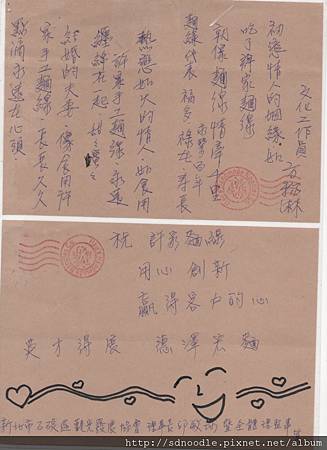 文化工作員
初戀情人的姻緣.如
吃了許家麵線
就像麵線情牽千里
永繫百年
麵線代表 福多 祿在 壽長
熱戀如火的情人.如食用
許家手工麵線.永遠
纏綿在一起
結婚的夫妻.像食用許
家手工麵線 長長久久
點滴永遠在心頭
祝 許家麵線
用心 創新
贏得客户的心
英才得展 德澤宏麵
新北市石碇區觀光發展協會 理事長
http://sdnoodle.pixnet.net/album